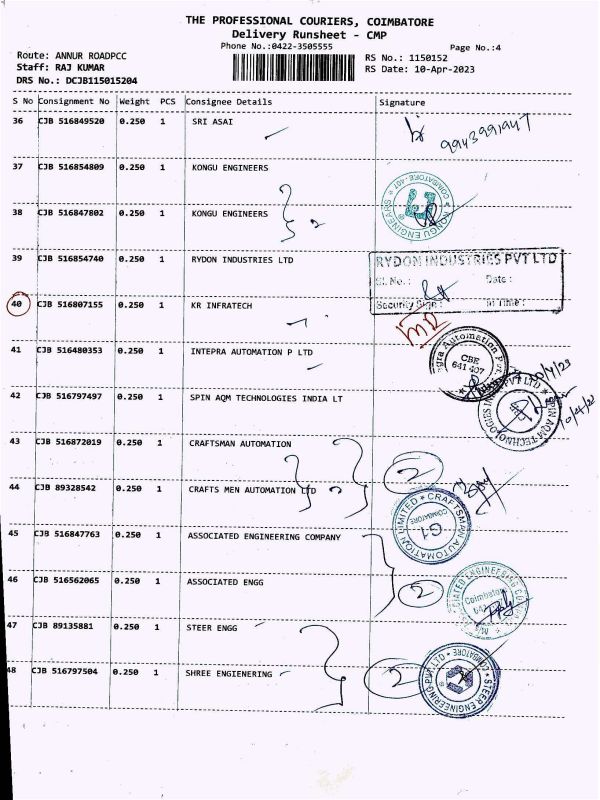 THE PROFESSIONAL COURIERS, COIMBATORE
Delivery Runsheet - CMP
Phone No.:0422-3505555
Page No.:4
Route: ANNUR ROADPCC
RS No.: 1150152
Staff: RAJ KUMAR
RS Date: 10-Apr-2023
DRS No.: DCJB115015204
S No Consignment No Weight PCS Consignee Details Signature
36 CJB 516849520 0.250 1 SRI ASAI
9943991947
37 CJB 516854809 0.250 1 KONGU ENGINEERS
KONGU ENGINEERS COIMBATORE-407
38 CJB 516847802 0.250 1 KONGU ENGINEERS
2
39 CJB 516854740 0.250 1 RYDON INDUSTRIES LTD
RYDON INDUSTRIES PVT LTD
Sl. No.: Date:
Security Sign: In Time:
40 CJB 516807155 0.250 1 KR INFRATECH
MD
41 CJB 516480353 0.250 1 INTEPRA AUTOMATION P LTD
Automation Pvt.
CBE
641 407
42 CJB 516797497 0.250 1 SPIN AQM TECHNOLOGIES INDIA LT
SPIN AQM TECHNOLOGIES PVT LTD
43 CJB 516872019 0.250 1 CRAFTSMAN AUTOMATION
2
44 CJB 89328542 0.250 1 CRAFTS MEN AUTOMATION LTD
2
CRAFTSMAN AUTOMATION LIMITED
COIMBATORE
G1
45 CJB 516847763 0.250 1 ASSOCIATED ENGINEERING COMPANY
46 CJB 516562065 0.250 1 ASSOCIATED ENGG
2
ASSOCIATED ENGINEERING
Coimbatore
47 CJB 89135881 0.250 1 STEER ENGG
48 CJB 516797504 0.250 1 SHREE ENGIENERING
2
STEER ENGINEERING PVT LTD
COIMBATORE